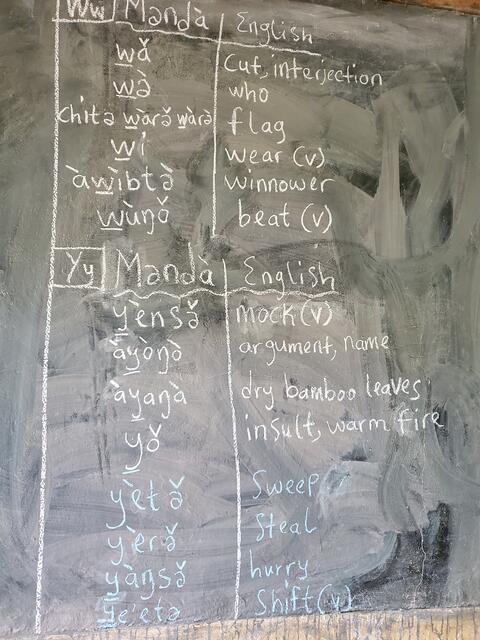 Ww Mandà English
wǎ cut, interjection
wà who
chitə wàrə̌ wàrə̀ flag
wí wear (v)
àwìbtə̀ winnower
wùŋǒ beat (v)
Yy Məndà English
yènsə̌ mock (v)
àyòŋò argument, name
àyaŋà dry bamboo leaves
yǒ insult, warm fire
yètə̌ Sweep
yèrə̌ Steal
yàŋsə̌ hurry
ye'etə Shift (v)